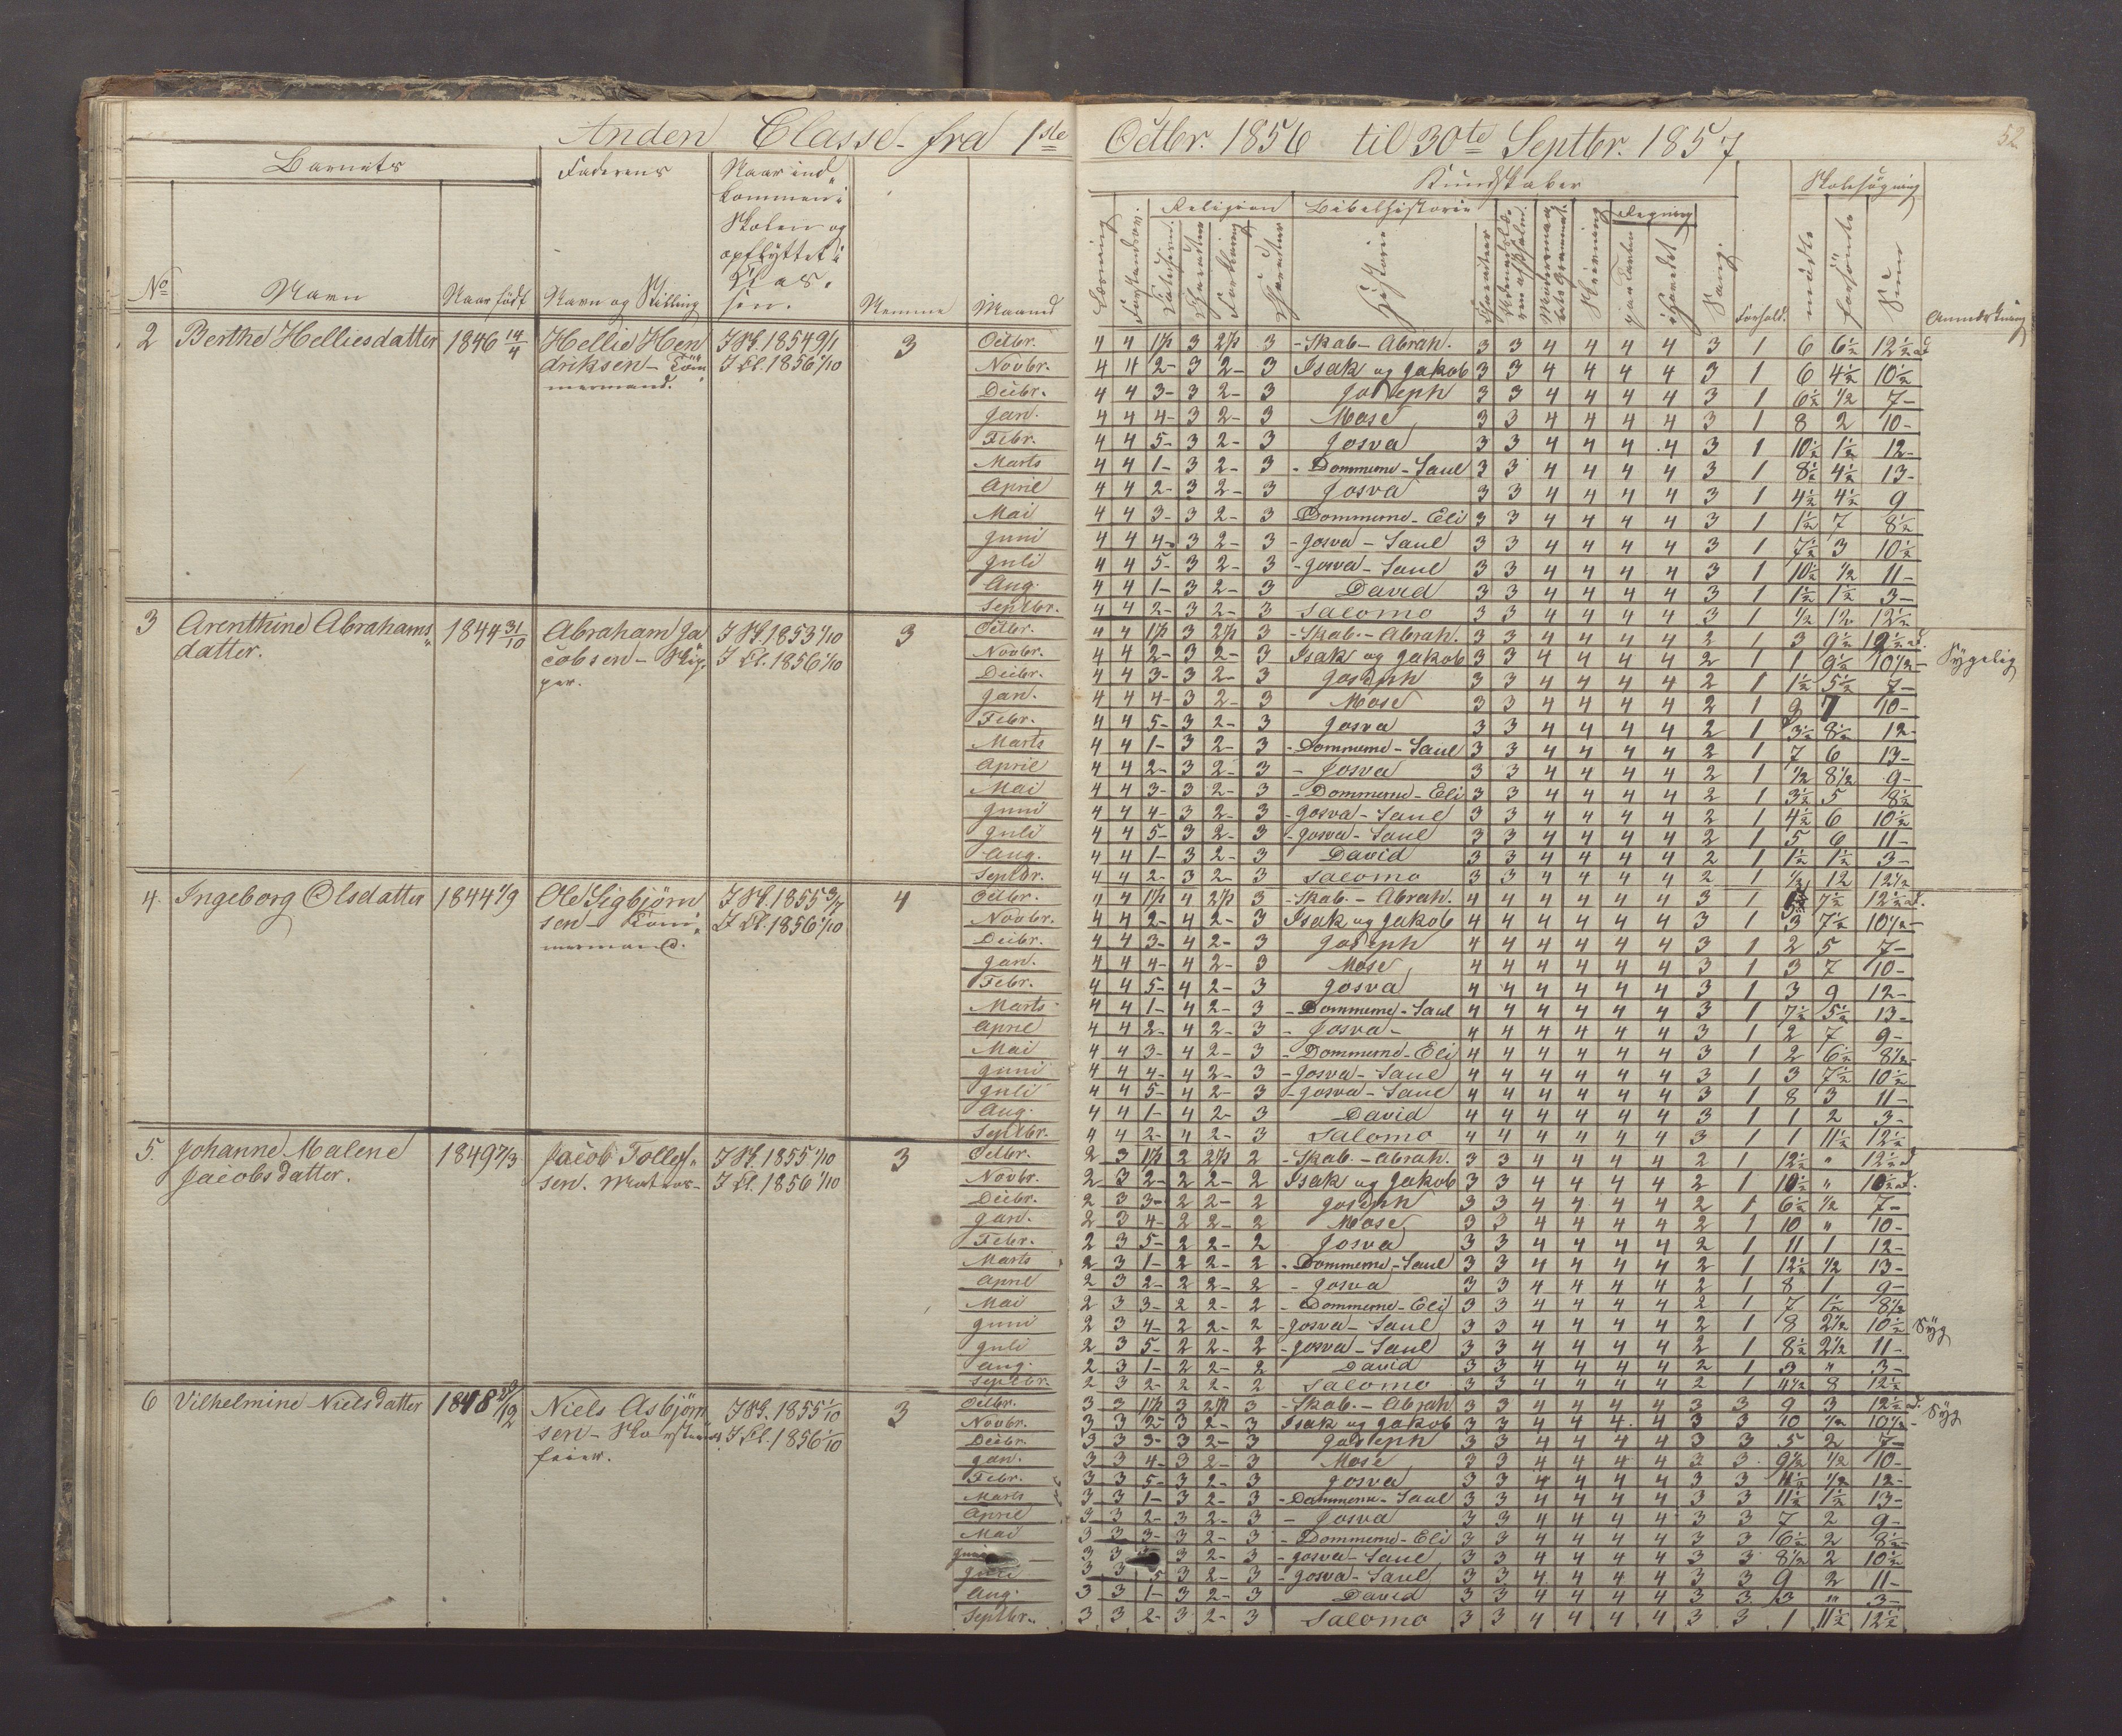 Anden Classe fra 1ste Octbr. 1856 til 30te Septbr. 1857
52
Barnets
Faderens
Naar ind-
kommen i
Skolen og
opflyttet i
Clas-
sen.
No
Navn
Naar født
Navn og Stilling
Nemme
Maaned
Kundskaber
Skolesøgning
Religion
Bibelhistorie
Regning
Læsning
Historie
Skrivning
Sang.
Forhold.
mødte
forsømte
Sum
Anmærkning
2 Berthe Helliesdatter 1846 14/4 Hellie Hen
driksen - Töm
mermand.
I Sk. 1854 9/1
I Cl. 1856 1/10
3
Octbr. 4 4 1½ 3 2½ 3 - Skab - Abrah. 3 3 4 4 4 4 3 1 6 6½ 12½
Novbr. 4 4 2- 3 2- 3 Isak og Jakob 3 3 4 4 4 4 3 1 6 4½ 10½
Decbr. 4 4 3- 3 2- 3 Joseph 3 3 4 4 4 4 3 1 6½ ½ 7-
Jan. 4 4 4- 3 2- 3 Mose 3 3 4 4 4 4 3 1 8 2 10-
Febr. 4 4 5- 3 2- 3 Josva 3 3 4 4 4 4 3 1 10½ 1½ 12-
Marts 4 4 1- 3 2- 3 - Dommerne - Saul 3 3 4 4 4 4 3 1 8½ 4½ 13-
April 4 4 2- 3 2- 3 Josva 3 3 4 4 4 4 3 1 4½ 4½ 9
Mai 4 4 3- 3 2- 3 Dommerne - Eli 3 3 4 4 4 4 3 1 1½ 7 8½
Juni 4 4 4- 3 2- 3 - Josva - Saul 3 3 4 4 4 4 3 1 7½ 3 10½
Juli 4 4 5- 3 2- 3 - Josva - Saul 3 3 4 4 4 4 3 1 10½ ½ 11-
Aug. 4 4 1- 3 2- 3 David 3 3 4 4 4 4 3 1 1½ 1½ 3-
Septbr. 4 4 2- 3 2- 3 Salomo 3 3 4 4 4 4 3 1 ½ 12 12½
3 Arenthine Abrahams
datter.
1844 31/10 Abraham Ja
cobsen - Skip
per.
I Sk. 1853 1/10
I Cl. 1856 1/10
3
Sygelig
Octbr. 4 4 1½ 3 2½ 3 - Skab. - Abrah. 3 3 4 4 4 4 2 1 3 9½ 12½
Novbr. 4 4 2- 3 2- 3 Isak og Jakob 3 3 4 4 4 4 2 1 1 9½ 10½-
Decbr. 4 4 3- 3 2- 3 Joseph 3 3 4 4 4 4 2 1 1½ 5½ 7-
Jan. 4 4 4- 3 2- 3 Mose 3 3 4 4 4 4 2 1 3 7 10-
Febr. 4 4 5- 3 2- 3 Josva 3 3 4 4 4 4 2 1 3½ 8½ 12-
Marts 4 4 1- 3 2- 3 - Dommerne - Saul 3 3 4 4 4 4 2 1 7 6 13-
April 4 4 2- 3 2- 3 - Josva 3 3 4 4 4 4 2 1 ½ 8½ 9-
Mai 4 4 3- 3 2- 3 - Dommerne - Eli 3 3 4 4 4 4 2 1 3½ 5 8½
Juni 4 4 4- 3 2- 3 - Josva - Saul 3 3 4 4 4 4 2 1 4½ 6 10½
Juli 4 4 5- 3 2- 3 - Josva - Saul 3 3 4 4 4 4 2 1 5 6 11-
Aug. 4 4 1- 3 2- 3 David 3 3 4 4 4 4 2 1 1½ 1½ 3-
Septbr. 4 4 2- 3 2- 3 Salomo 3 3 4 4 4 4 2 1 ½ 12 12½
4. Ingeborg Olsdatter 1844 1/9 Ole Sigbjörn
sen - Töm
mermand.
I Sk. 1855 3/7
I Cl. 1856 1/10
4
Octbr. 4 4 1½ 4 2½ 3 - Skab. - Abrah. 4 4 4 4 4 4 3 1 5 7½ 12½
Novbr. 4 4 2- 4 2- 3 Isak og Jakob 4 4 4 4 4 4 3 1 3 7½ 10½-
Decbr. 4 4 3- 4 2- 3 Joseph 4 4 4 4 4 4 3 1 2 5 7-
Jan. 4 4 4- 4 2- 3 Mose 4 4 4 4 4 4 3 1 3 7 10-
Febr. 4 4 5- 4 2- 3 Josva 4 4 4 4 4 4 3 1 3 9 12-
Marts 4 4 1- 4 2- 3 - Dommerne - Saul 4 4 4 4 4 4 3 1 7½ 5½ 13-
April 4 4 2- 4 2- 3 - Josva - 4 4 4 4 4 4 3 1 2 7 9-
Mai 4 4 3- 4 2- 3 - Dommerne - Eli 4 4 4 4 4 4 3 1 2 6½ 8½-
Juni 4 4 4- 4 2- 3 - Josva - Saul 4 4 4 4 4 4 3 1 3 7½ 10½
Juli 4 4 5- 4 2- 3 - Josva - Saul 4 4 4 4 4 4 3 1 8 3 11-
Aug. 4 4 1- 4 2- 3 David 4 4 4 4 4 4 3 1 1 2 3-
Septbr. 4 4 2- 4 2- 3 Salomo 4 4 4 4 4 4 3 1 1 11½ 12½
5. Johanne Malene
Jacobsdatter.
1849 7/3 Jacob Tollef-
sen. Matros-
I Sk. 1855 1/10
I Cl. 1856 1/10
3
Octbr. 2 3 1½ 2 2½ 2 - Skab. - Abrah. 3 3 4 4 4 4 2 1 12½ " 12½
Novbr. 2 3 2- 2 2- 2 Isak og Jakob 3 3 4 4 4 4 2 1 10½ " 10½
Decbr. 2 3 3- 2 2- 2 Joseph 3 3 4 4 4 4 2 1 6½ ½ 7-
Jan. 2 3 4- 2 2- 2 Mose 3 3 4 4 4 4 2 1 10 " 10-
Febr. 2 3 5- 2 2- 2 Josva 3 3 4 4 4 4 2 1 11 1 12-
Marts 2 3 1- 2 2- 2 - Dommerne - Saul 3 3 4 4 4 4 2 1 12½ ½ 13-
April 2 3 2- 2 2- 2 - Josva 3 3 4 4 4 4 2 1 8 1 9-
Mai 2 3 3- 2 2- 2 - Dommerne - Eli 3 3 4 4 4 4 2 1 7 1½ 8½
Juni 2 3 4- 2 2- 2 - Josva - Saul 3 3 4 4 4 4 2 1 8 2½ 10½ Syg
Juli 2 3 5- 2 2- 2 - Josva - Saul 3 3 4 4 4 4 2 1 8½ 2½ 11-
Aug. 2 3 1- 2 2- 2 David 3 3 4 4 4 4 2 1 3 " 3-
Septbr. 2 3 2- 2 2- 2 Salomo 3 3 4 4 4 4 2 1 4½ 8 12½
6 Vilhelmine Nielsdatter 1848 Niels Asbjörn
sen - Skorsteens
feier.
I Sk. 1855 1/10
I Cl. 1856 1/10
3
Octbr. 3 3 1½ 3 2½ 3 - Skab. - Abrah 3 3 4 4 4 4 3 3 9 3 12½ Syg
Novbr. 3 3 2- 3 2- 3 Isak og Jakob 3 3 4 4 4 4 3 3 10 ½ 10½-
Decbr. 3 3 3- 3 2- 3 Joseph 3 3 4 4 4 4 3 3 5 2 7-
Jan. 3 3 4- 3 2- 3 Mose 3 3 4 4 4 4 3 3 9½ ½ 10-
Febr. 3 3 5- 3 2- 3 Josva 3 3 4 4 4 4 3 3 11½ ½ 12-
Marts 3 3 1- 3 2- 3 - Dommerne - Saul 3 3 4 4 4 4 3 3 11½ 1½ 13-
April 3 3 2- 3 2- 3 - Josva 3 3 4 4 4 4 3 3 7 2 9-
Mai 3 3 3- 3 2- 3 - Dommerne - Eli 3 3 4 4 4 4 3 3 6½ 2 8½-
Juni 3 3 3 2- 3 - Josva - Saul 3 3 4 4 4 4 3 3 8½ 2 10½
Juli 3 3 5 3 2- 3 - Josva - Saul 3 3 4 4 4 4 3 3 9 2 11-
Aug. 3 3 1- 3 2- 3 David 3 3 4 4 4 4 3 3 3 " 3-
Septbr. 3 3 2- 3 2- 3 Salomo 3 3 4 4 4 4 3 3 1 11½ 12½